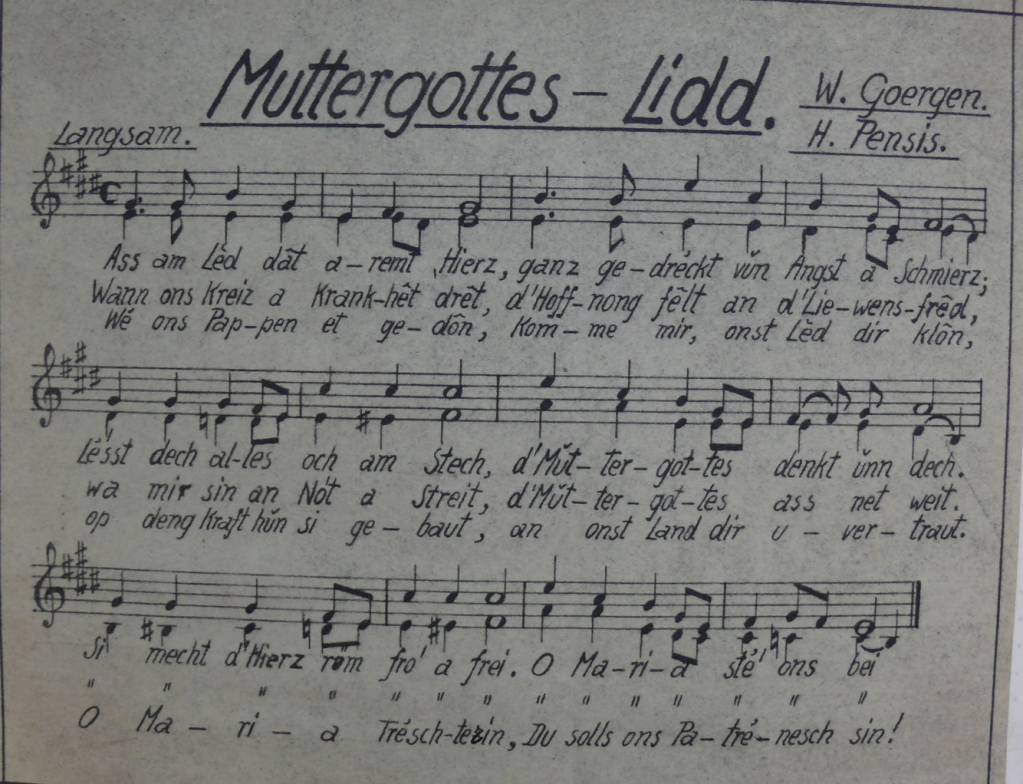 Muttergottes – Lidd.
W. Goergen.
H. Pensis.
Langsam.
Ass am Lèd dât a–remt Hierz, ganz ge–dréckt vŭn Angst a Schmierz;
Wann ons Kreiz a Krank–hêt drêt, d'Hoff–nong fêlt an d'Lie–wens–frêd,
Wé ons Pap–pen et ge–dôn, Kom–me mir, onst Lèd dir klôn,
Lésst dech al–les och am Stech, d'Mŭt–ter–got–tes denkt ŭnn dech.
wa mir sin an Nôt a Streit, d'Mŭt–ter–got–tes ass net weit.
op deng Kraft hŭn si ge–baut, an onst Land dir u–ver–traut.
Si mecht d'Hierz rôm fro' a frei. O Ma–ri–a sté' ons bei
" " " " " " " " " " " " "
O Ma–ri–a Trésch–terin, Du solls ons Pa–tré–nesch sin!